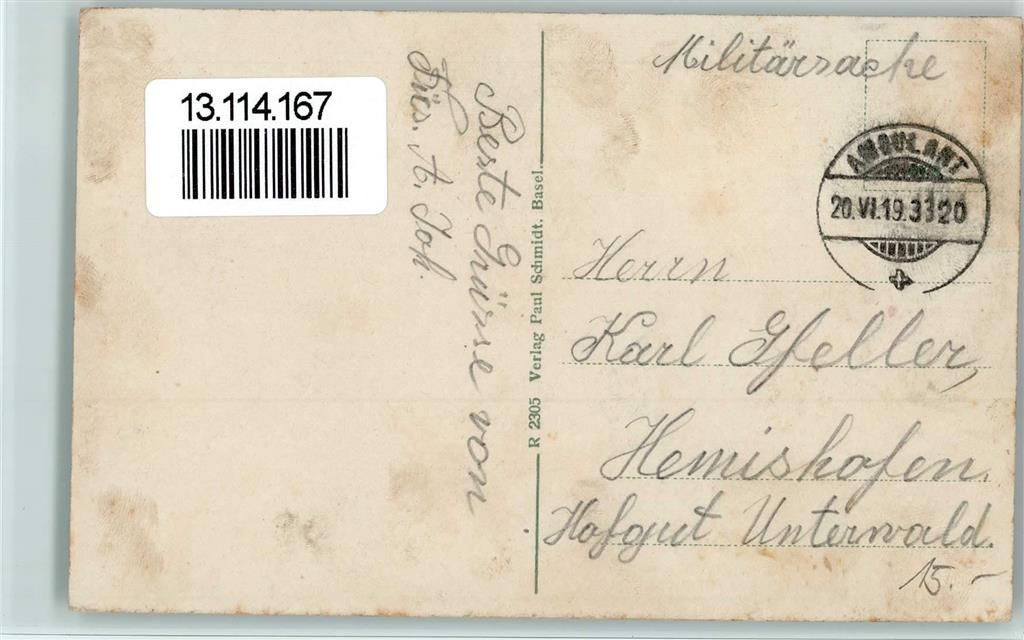 13.114.167
Militärsache
AMBULANT
20.VI.19.3320
Beste Grüsse von
Füs. A. Joh.
R 2305 Verlag Paul Schmidt, Basel.
Herrn
Karl Gfeller,
Hemishofen.
Hofgut Unterwald.
15.-